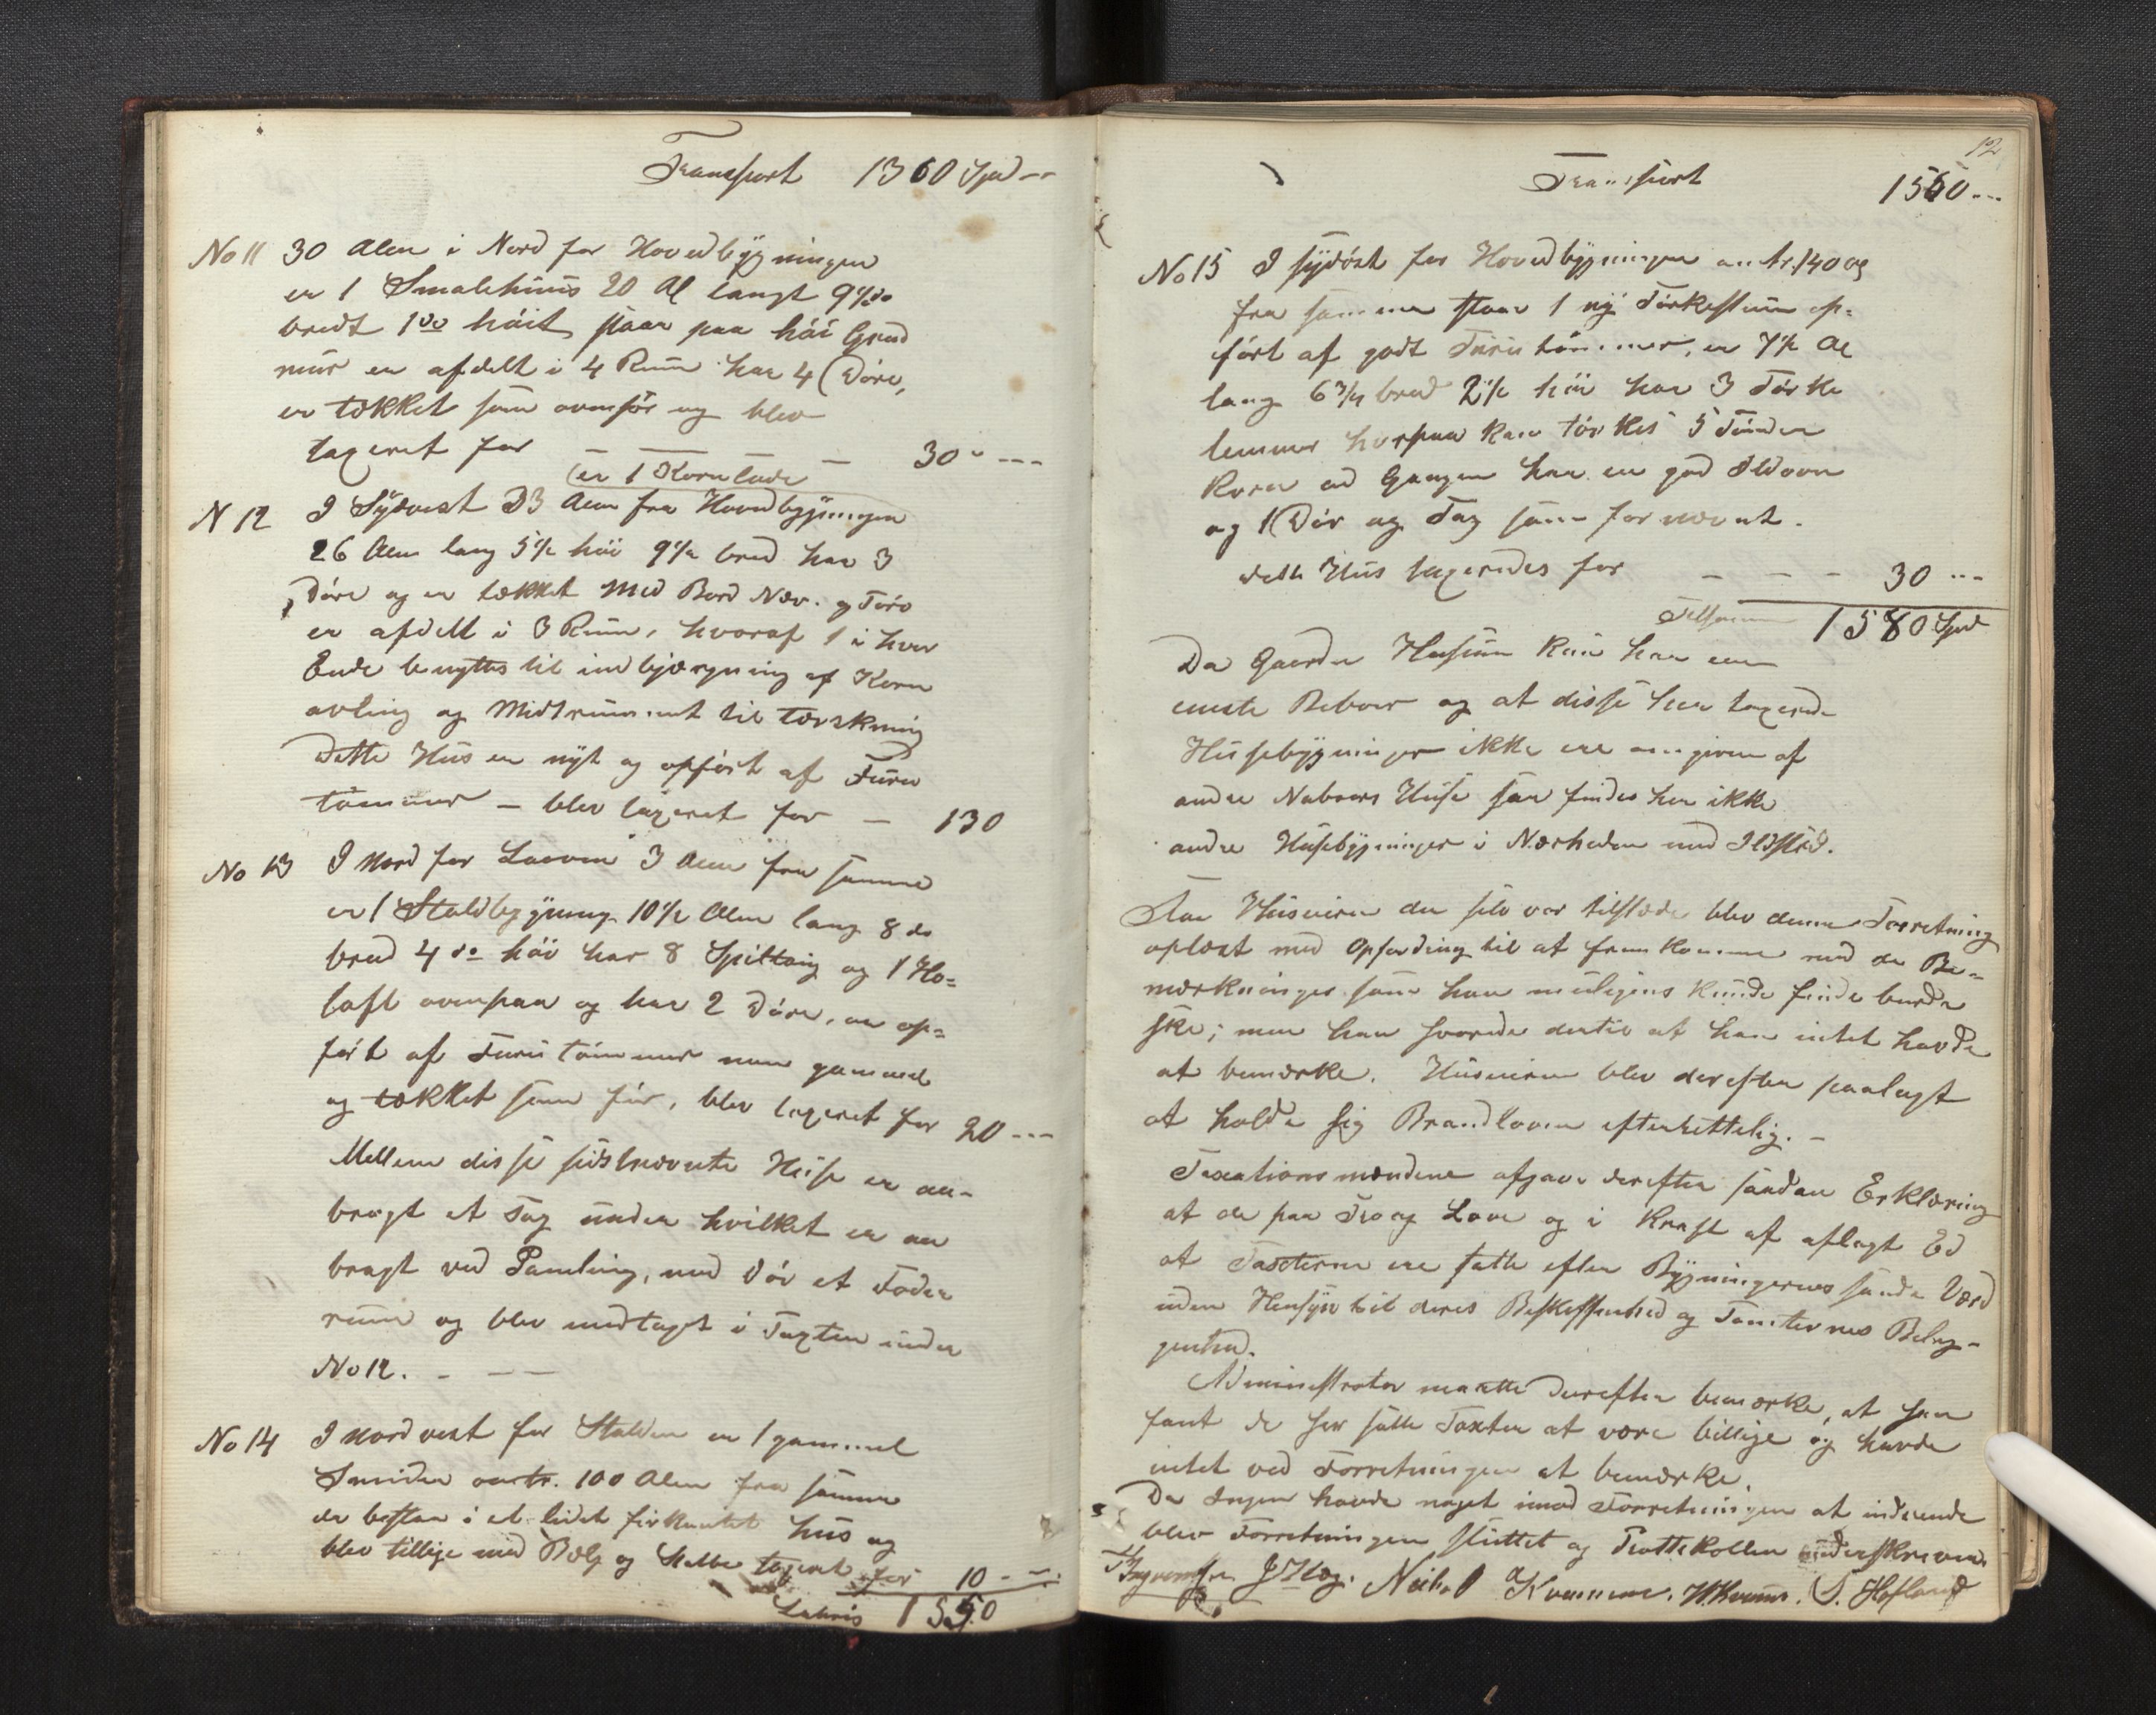 Transport 1360 Spd --
No 11 30 Alen i Nord for Hovedbygningen
er 1 Smalehuus 20 Al langt 9½ do
bredt 1 do höit staar paa höi Grund
muur er afdelt i 4 Rum har 4 Döre,
er tækket som ovenför og blev
taxeret for — — — 30 " ---
er 1 Kornlade
N 12 I Sydvest 33 Alen fra Hovedbygningen
26 Alen lang 5½ höi 9½ bred har 3
Döre og er tækket med Bord Næv. og Törv
er afdelt i 3 Rum, hvoraf 1 i hver
Ende benyttes til indbjærgning af Korn
avling og Midtrummet til tærskning
Dette Hus er nyt og opfört af Furu
tömmer — blev taxeret for — 130
No 13 I Nord for Laaven 3 Alen fra samme
er 1 Staldbygning 10½ Alen lang 8 do
bred 4 do höi har 8 Spiltoug og 1 Hö=
loft ovenpaa og har 2 Döre, er op=
fört af Furutömmer men gammel
og tækket som för, blev taxeret for 20 ---
Mellem disse sidstnævnte Huse er an-
bragt et Tag under hvilket er an
bragt ved Paneling, med Dör et Foder
rum og blev medtaget i Taxten under
No 12. - — —
No 14 I Nordvest for Stalden er 1 gammel
Smidie omtr. 100 Alen fra samme
der bestaar i et lidet firkantet hus og
blev tillige med Bælg og Stabbe taxeret for 10 - -
Lateris 1550
12
Transport 1550 ---
No 15 I sydöst for Hovedbygningen omtr. 140 al
fra samme staar 1 ny Törkestue op=
fört af godt Furu tömmer, er 7½ Al
lang 6¾ bred 2½ höi har 3 Törke
lemmer hvorpaa kan törkes 5 Tönder
Korn ad Gangen har en god Ildovn
og 1 Dör og Tag som fornævnt.
dette Hus taxeredes for — — — 30 ---
Tilsammen 1580 Spd
Da Gaarden Husum kun har een
eneste Beboer og at disse her taxerede
Husebygninger ikke ere omgivne af
andre Naboers Huse saa findes her ikke
andre Husebygninger i Nærheden med Ildsted.
For Huseieren der selv var tilstæde blev denne Forretning
oplæst med Opfordring til at fremkomme med de Be-
mærkninger som han muligens kunde finde burde
ske; men han svarede dertil at han intet havde
at bemærke. Huseieren blev derefter paalagt
at holde sig Brandloven efterrettelig. —
Taxationsmændene afgave derefter saadan Erklæring
at de paa Tro og Love og i Kraft af aflagt Ed
at Taxterne ere satte efter Bygningernes sande Værd
uden Hensyn til deres Beskaffenhed og Tomternes Belig-
genhed.
Administrator maatte derefter bemærke, at han
fant de her satte Taxter at være billige og havde
intet ved Forretningen at bemærke.
Da Ingen havde noget imod Forretningen at indvende
blev Forretningen sluttet og Prottokollen underskreven.